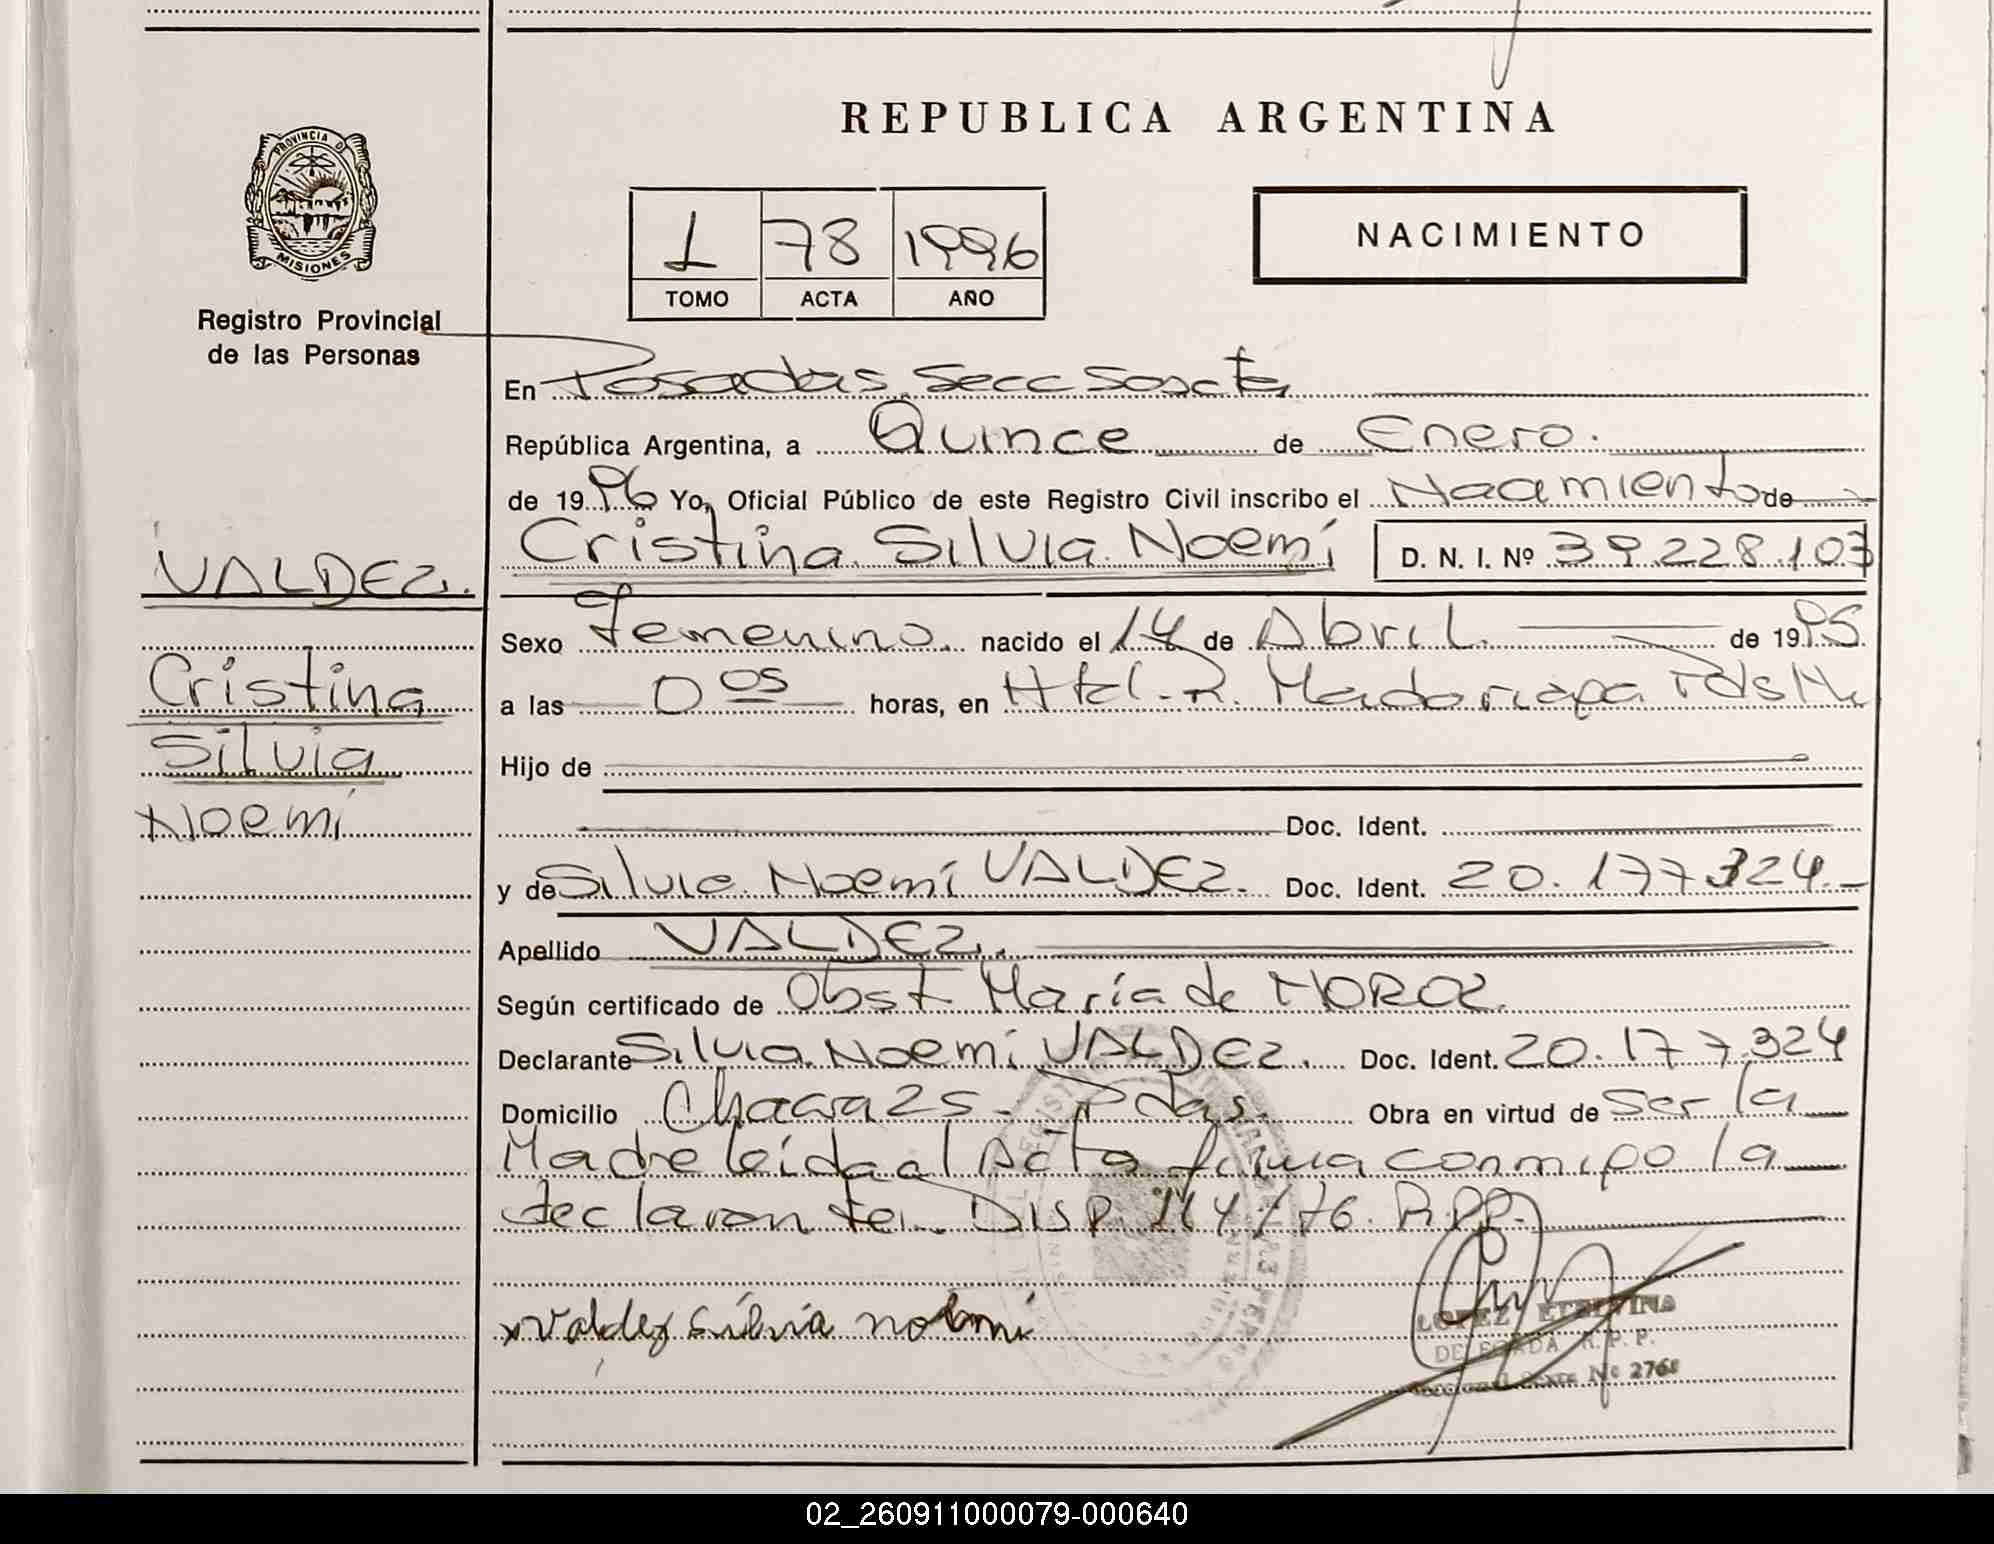 REPUBLICA ARGENTINA
PROVINCIA D
MISIONES
Registro Provincial
de las Personas
1 78 1996
TOMO ACTA AÑO
NACIMIENTO
En Posadas Secc Sexta
República Argentina, a Quince de Enero.
de 1996 Yo, Oficial Público de este Registro Civil inscribo el Nacimiento de
VALDEZ.
Cristina Silvia Noemí D. N. I. Nº 39.228.103
Cristina
Silvia
Noemí
Sexo femenino. nacido el 14 de Abril de 1995.
a las 0 05 horas, en Htal. R. Madariaga Pds
Hijo de
Doc. Ident.
y de Silvia Noemí VALDEZ. Doc. Ident. 20.177.324.-
Apellido VALDEZ.
Según certificado de Obst. María de MOROZ.
Declarante Silvia Noemi VALDEZ. Doc. Ident. 20.177.324
Domicilio Chacra 25 - Pdas. Obra en virtud de ser la
Madre leída el Acta firma conmigo la
declarante. DISP. 114/76. R.P.P.
x Valdez silvia noemi
LOPEZ
DELEGADA R. P. P.
Seccional Sexta Nº 2768
02_260911000079-000640